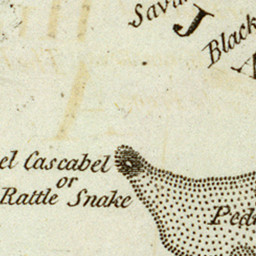 Sava
J
Black
A
el Cascabel
or
Rattle Snake
Ped